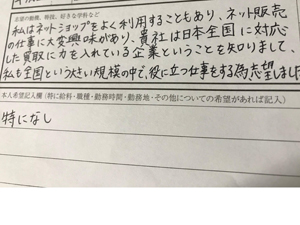 志望の動機、特技、好きな学科など
私はネットショップをよく利用することもあり、ネット販売
の仕事に大変興味があり、貴社は日本全国に対応
した買取に力を入れている企業ということを知りまして、
私も全国という大きい規模の中で、役に立つ仕事をする為志望しました
本人希望記入欄(特に給料・職種・勤務時間・勤務地・その他についての希望があれば記入)
特になし